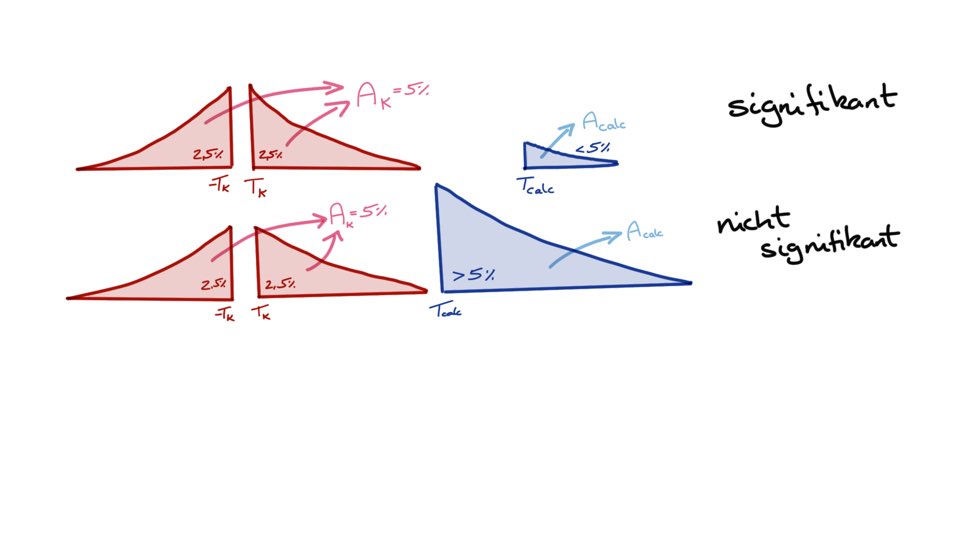 A_K = 5%
2,5% 2,5%
-T_K T_K
A_calc
<5%
T_calc
signifikant
A_K = 5%
2,5% 2,5%
-T_K T_K
A_calc
>5%
T_calc
nicht
signifikant